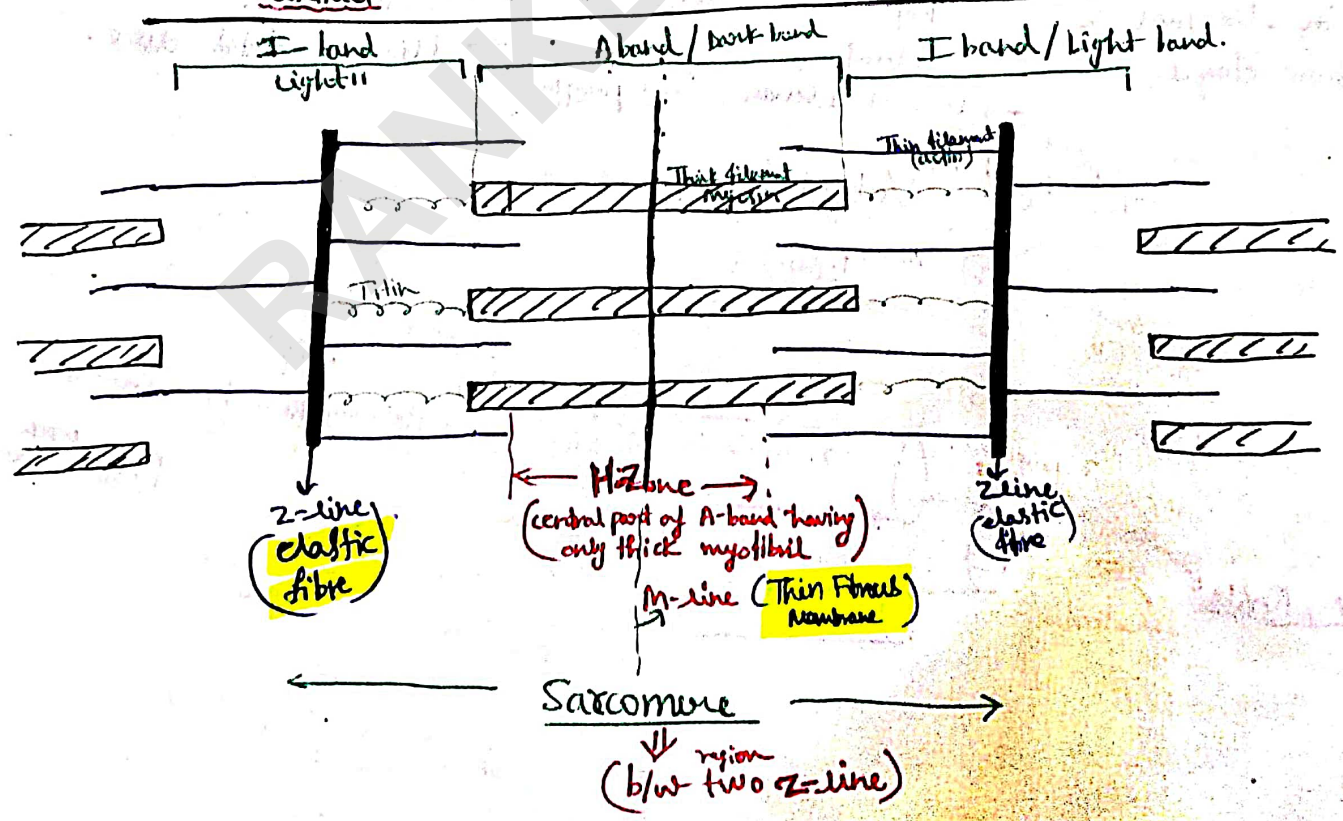 I-band
Light 11
A band / Dark band
I band / Light band.
Thin filament
(actin)
Thick filament
myosin
Titin
H-Zone
(central part of A-band having
only thick myofibril)
z-line
(elastic
fibre)
Z line
(elastic
fibre)
M-line (Thin Fibrous
Membrane)
Sarcomere
⇓ region
(b/w two z-line)
RANK